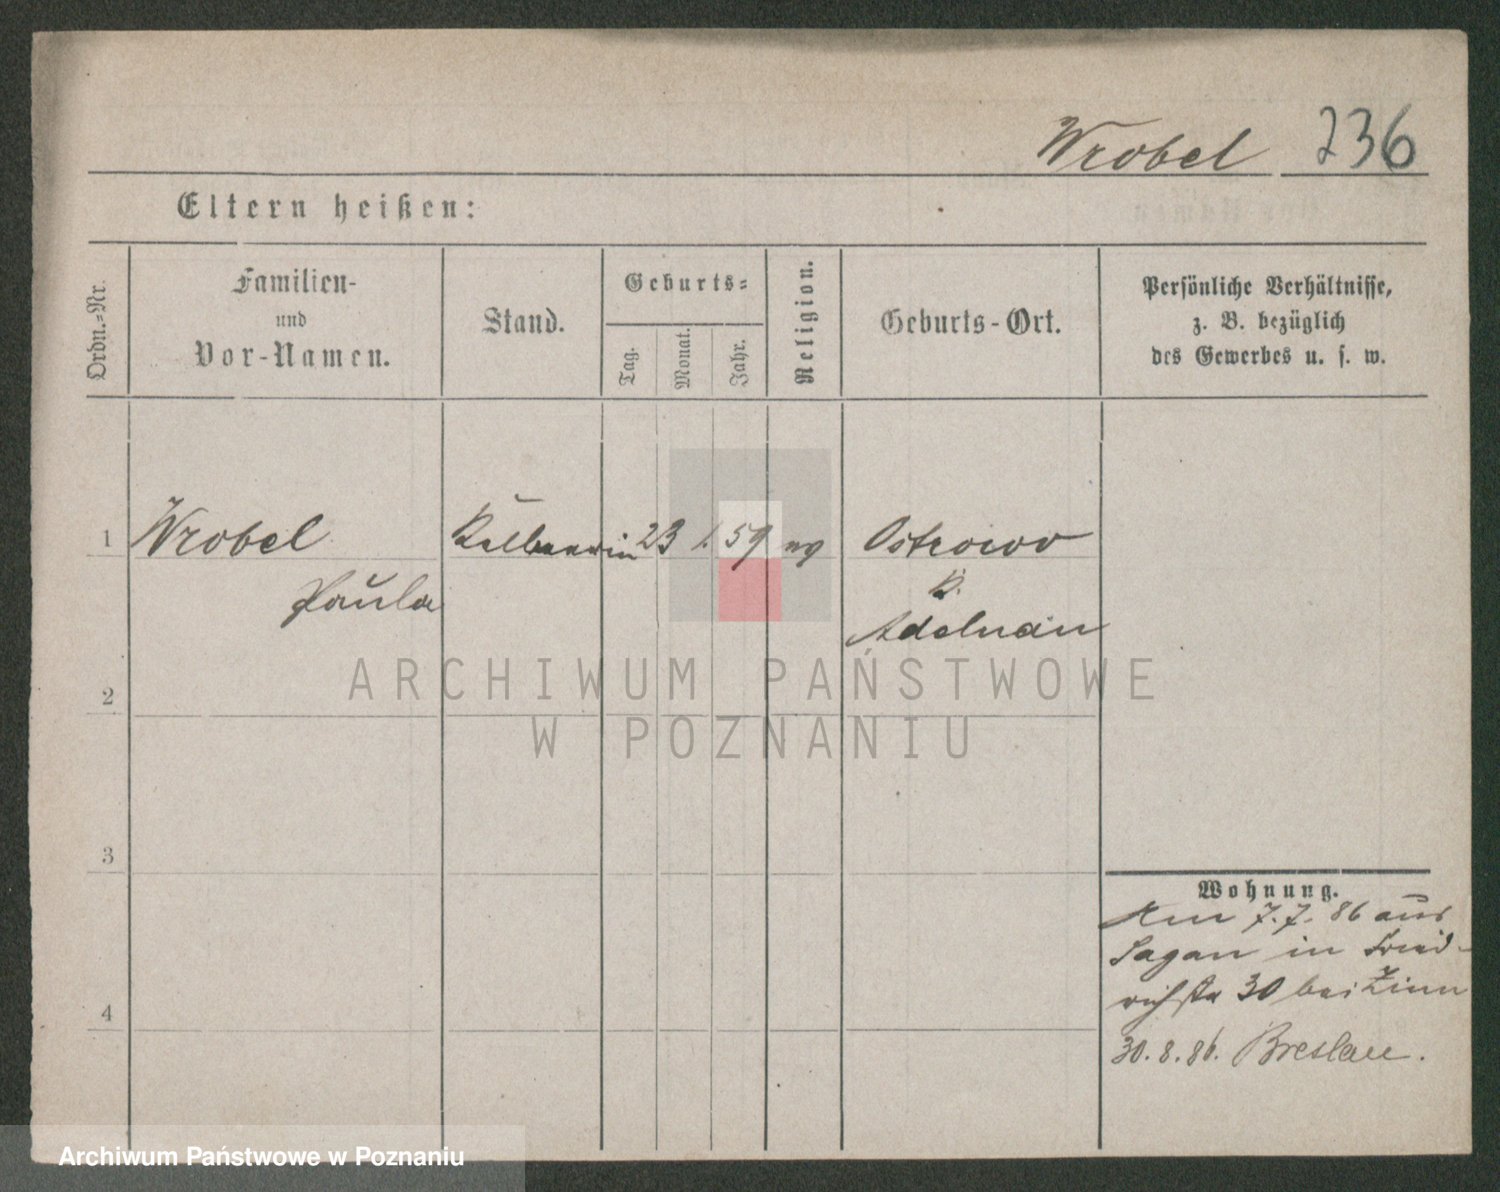 Wrobel 236
Eltern heißen:
Ordn.-Nr.
Familien-
und
Vor-Namen.
Stand.
Geburts-
Tag.
Monat.
Jahr.
Religion.
Geburts-Ort.
Persönliche Verhältnisse,
z. B. bezüglich
des Gewerbes u. s. w.
1 Wrobel Kellnerin 23 1. 59 Ostrowo
Paula
K.
Adelnau
2
3
4
Wohnung.
Am 7.7. 86 aus
Sagan in Fried-
richstr 30 bei Zinn
30. 8. 86. Breslau.
ARCHIWUM PAŃSTWOWE
W POZNANIU
Archiwum Państwowe w Poznaniu